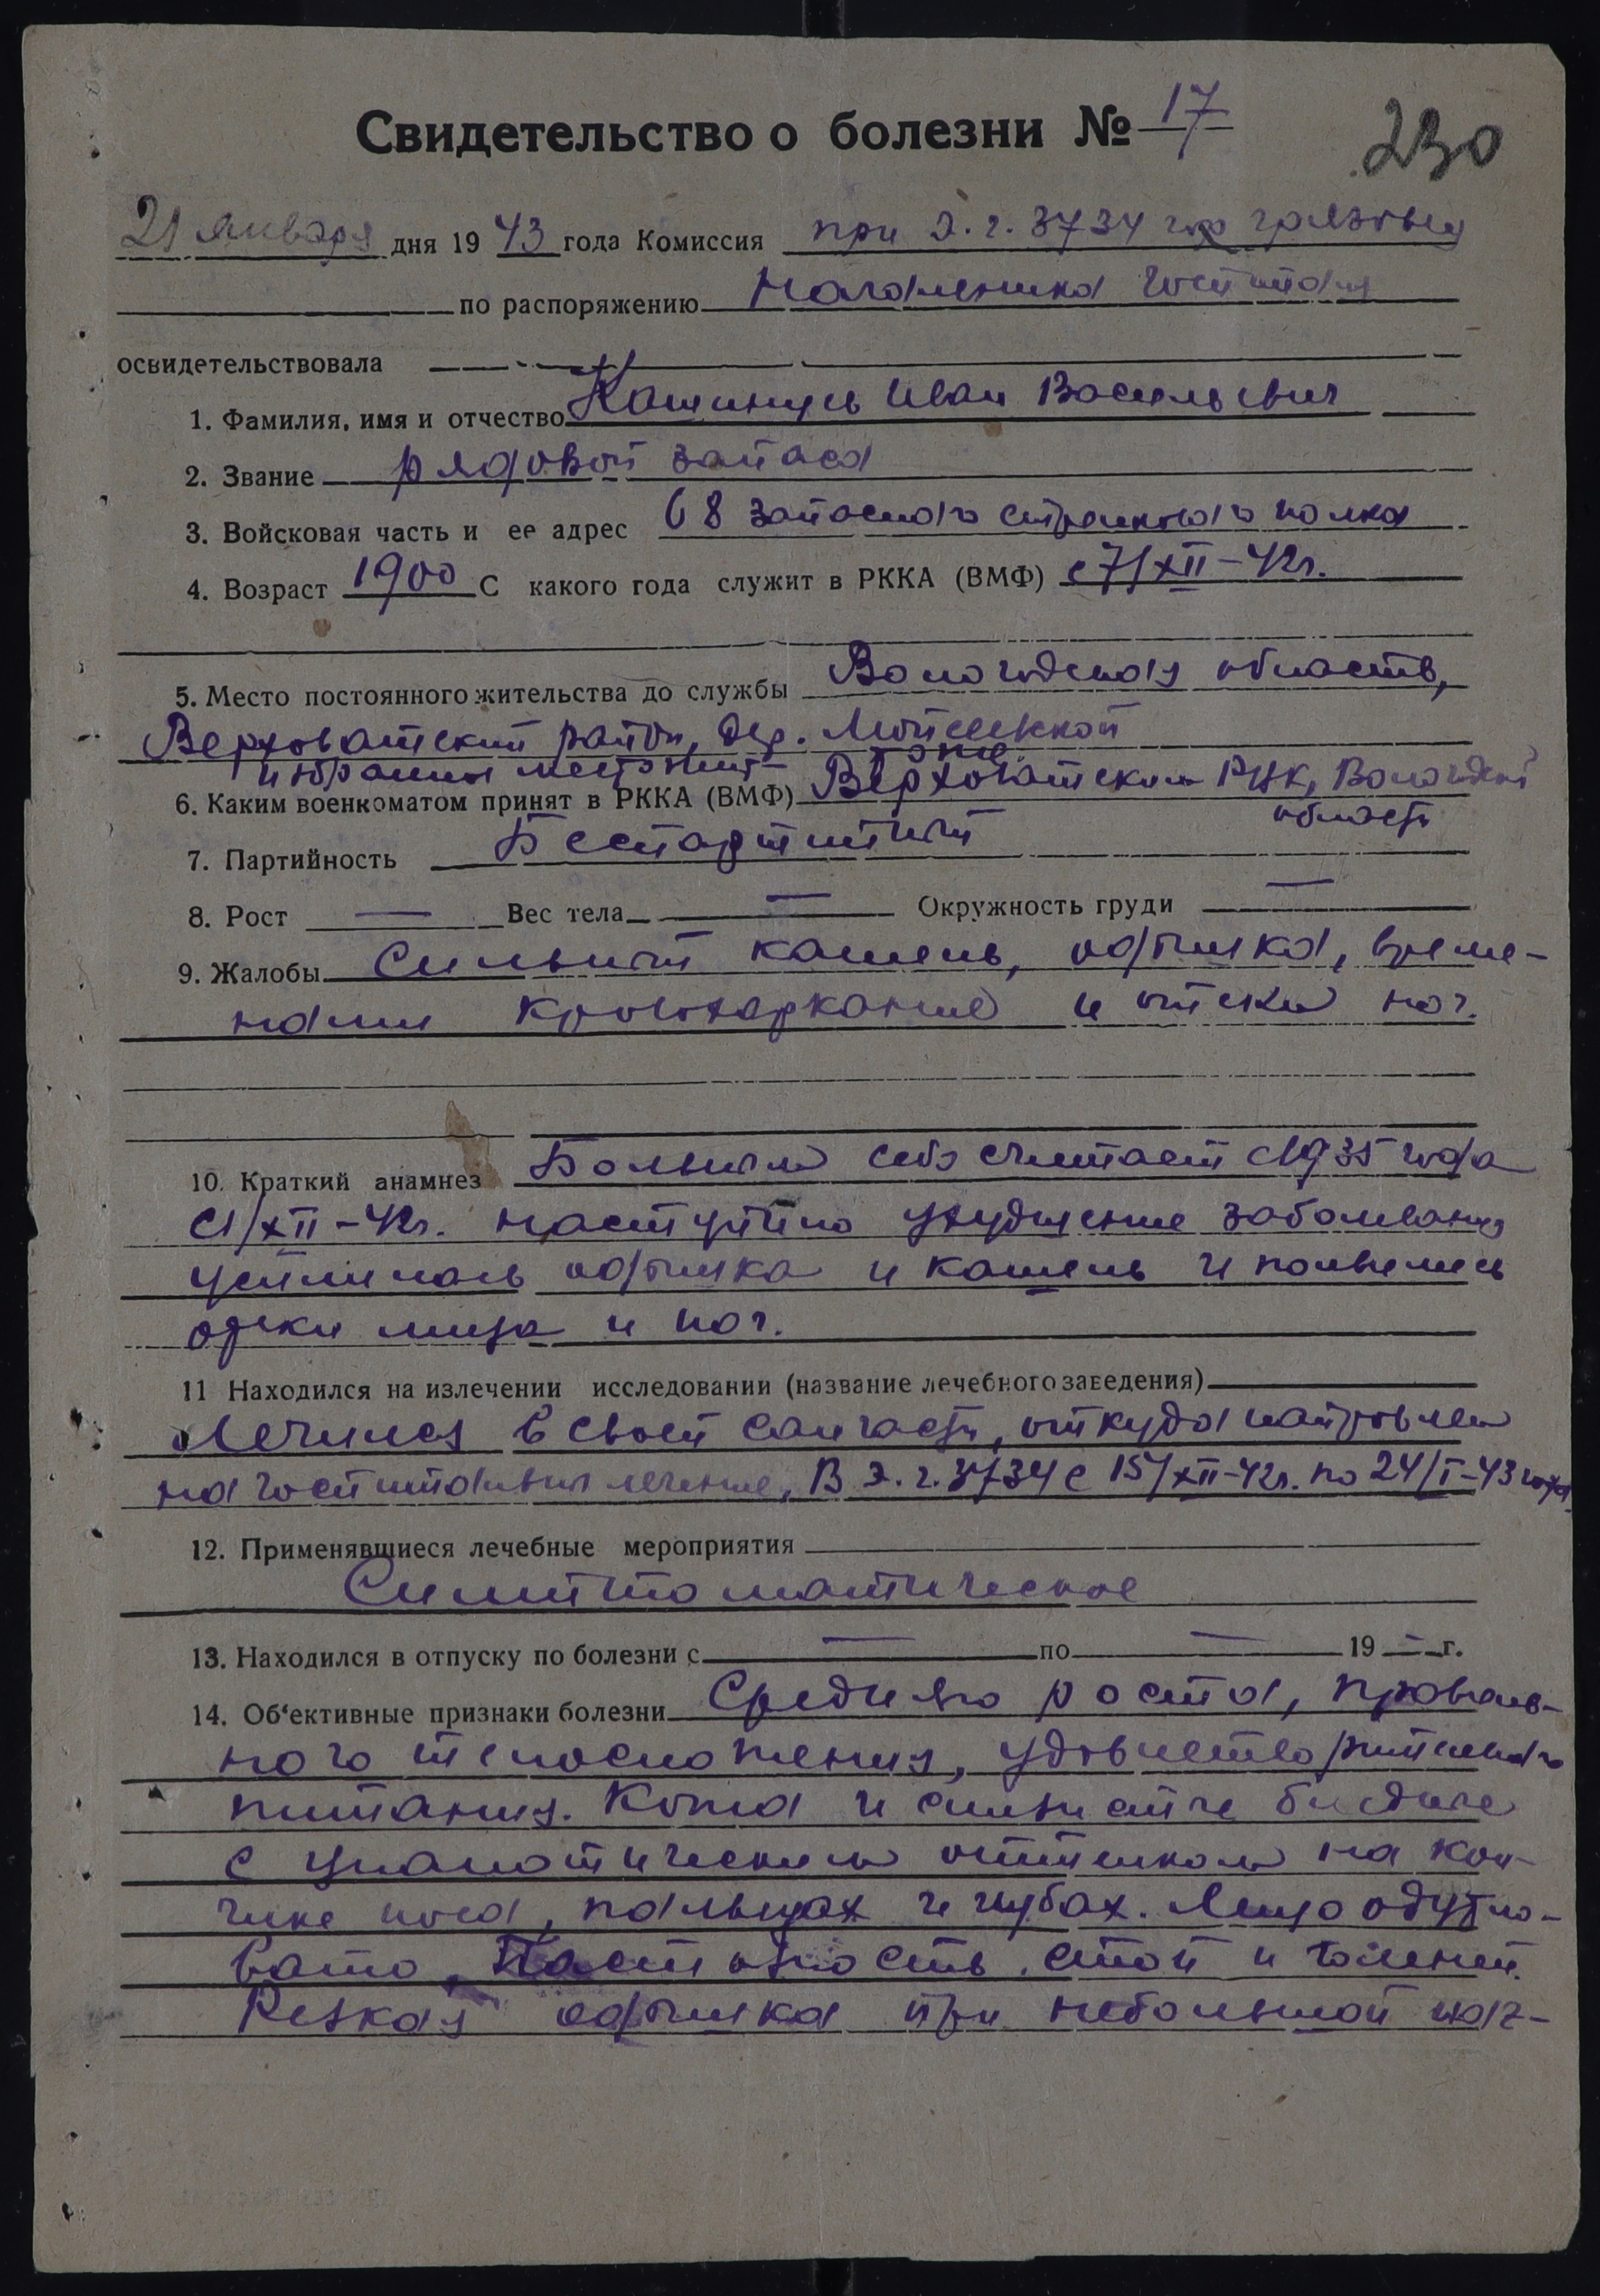 Свидетельство о болезни № 17
230
21 января дня 1943 года Комиссия при Э.г. 3734 гор Грязовец
по распоряжению Начальника Госпиталя
освидетельствовала
1. Фамилия, имя и отчество Иван Васильевич
2. Звание рядовой запаса
3. Войсковая часть и ее адрес 68 запасного стрелкового полка
4. Возраст 1900 С какого года служит в РККА (ВМФ) с 7/XII-42г.
5. Место постоянного жительства до службы Вологодская область,
Верховажский район, дер.
избранное место жит- тоже
6. Каким военкоматом принят в РККА (ВМФ) Верховажским РВК, Вологодской
области
7. Партийность Беспартийный
8. Рост — Вес тела — Окружность груди —
9. Жалобы Сильный кашель, одышка, време-
нами кровохаркание и отеки ног.
10. Краткий анамнез Больным себя считает с 1935 года
с 1/XII-42г. наступило ухудшение заболевания
усилилась одышка и кашель и появились
отеки лица и ног.
11 Находился на излечении исследовании (название лечебного заведения)
Лечился в своей санчасти, откуда направлен
на госпитальное лечение, В Э.г. 3734 с 15/XII-42г. по 24/I-43 года.
12. Применявшиеся лечебные мероприятия
Симптоматическое
13. Находился в отпуску по болезни с — по — 19 — г.
14. Об'ективные признаки болезни Среднего роста, правиль-
ного телосложения, удовлетворительного
питания. Кожа и слизистые бледные
с цианотическим оттенком на кон-
чике носа, пальцах и губах. Лицо одутло-
вато. Пастозность стоп и голеней.
Резкая одышка при небольшой наг-